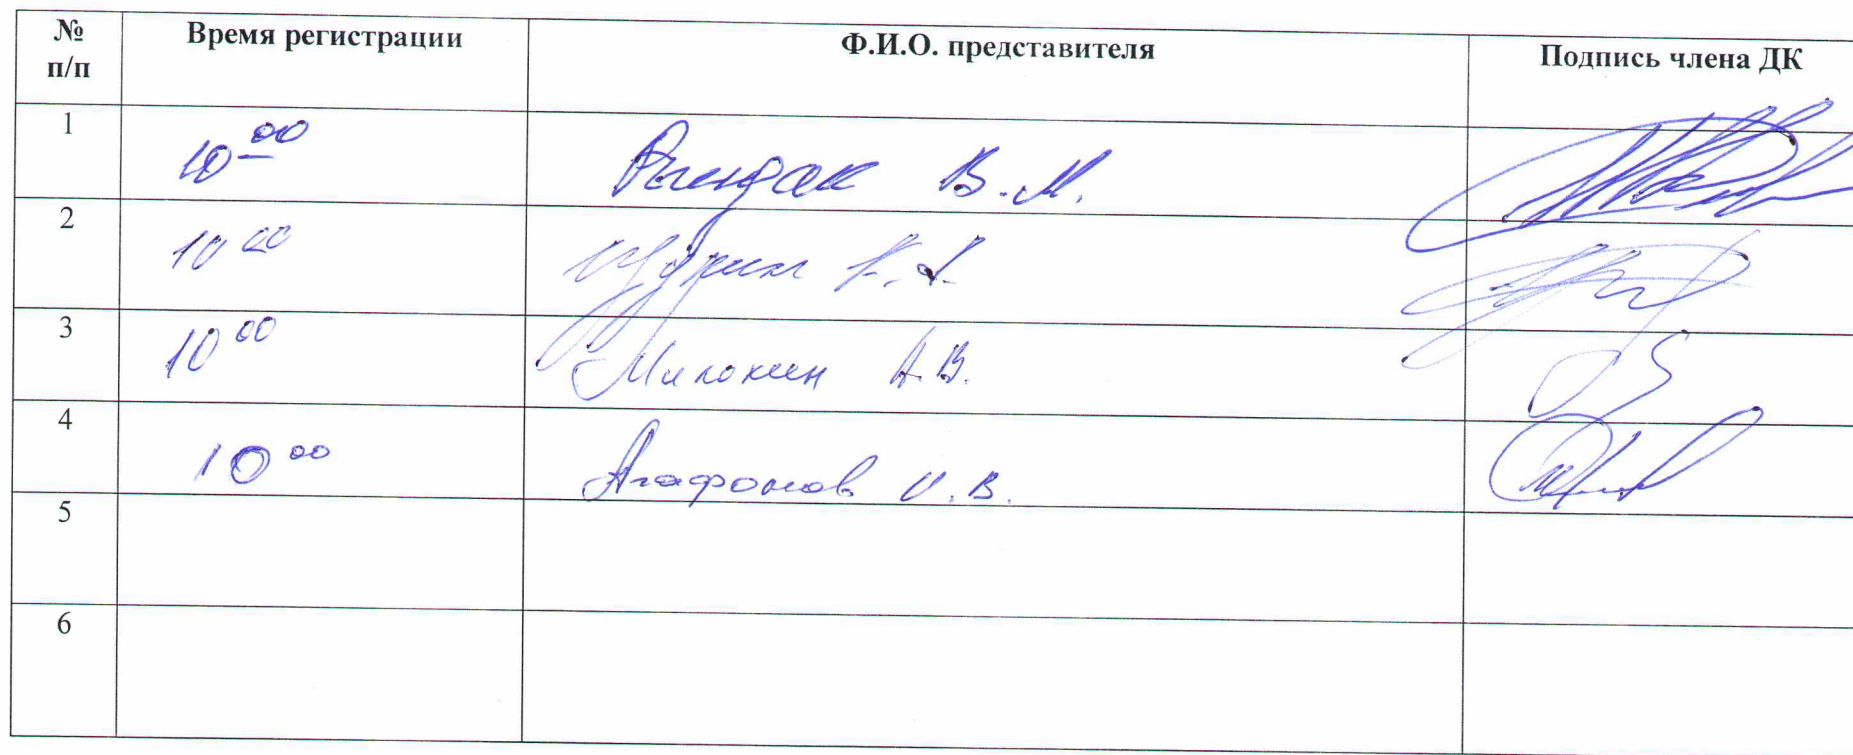 № п/п Время регистрации Ф.И.О. представителя Подпись члена ДК
1 10 00 В.М.
2 10 00
3 10 00 Милокин А.В.
4 10 00 Агафонов И.В.
5
6